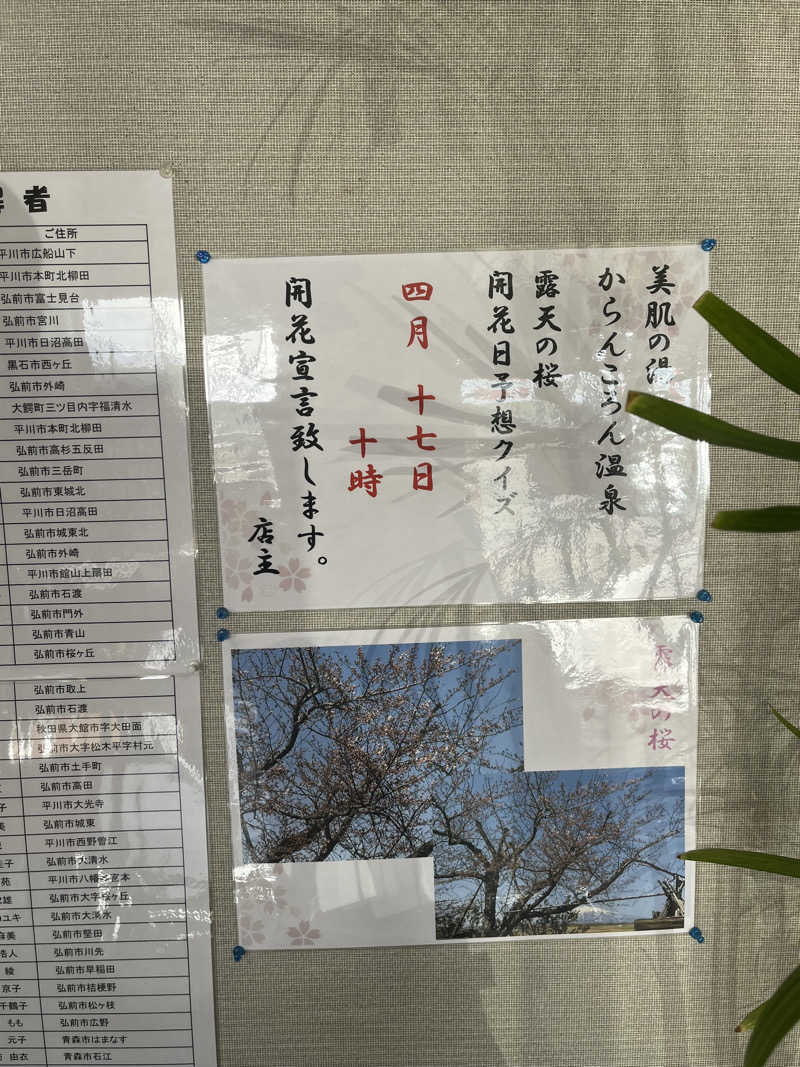 者
ご住所
平川市広船山下
平川市本町北柳田
弘前市富士見台
弘前市宮川
平川市日沼高田
黒石市西ヶ丘
弘前市外崎
大鰐町三ツ目内字福清水
平川市本町北柳田
弘前市高杉五反田
弘前市三岳町
弘前市東城北
平川市日沼高田
弘前市城東北
弘前市外崎
平川市館山上扇田
弘前市石渡
弘前市門外
弘前市青山
弘前市桜ヶ丘
弘前市取上
弘前市石渡
秋田県大館市字大田面
弘前市大字松木平字村元
弘前市土手町
弘前市高田
子 平川市大光寺
美 弘前市城東
平川市西野曽江
圭子 弘前市大清水
苑 平川市八幡
雄 弘前市大字桜ヶ丘
ユキ 弘前市大清水
麻美 弘前市堅田
浩人 弘前市川先
綾 弘前市早稲田
京子 弘前市桔梗野
千鶴子 弘前市松ヶ枝
もも 弘前市広野
元子 青森市はまなす
由衣 青森市石江
美肌の湯
からんころん温泉
露天の桜
開花日予想クイズ
四月 十七日
十時
開花宣言致します。
店主
露天の桜